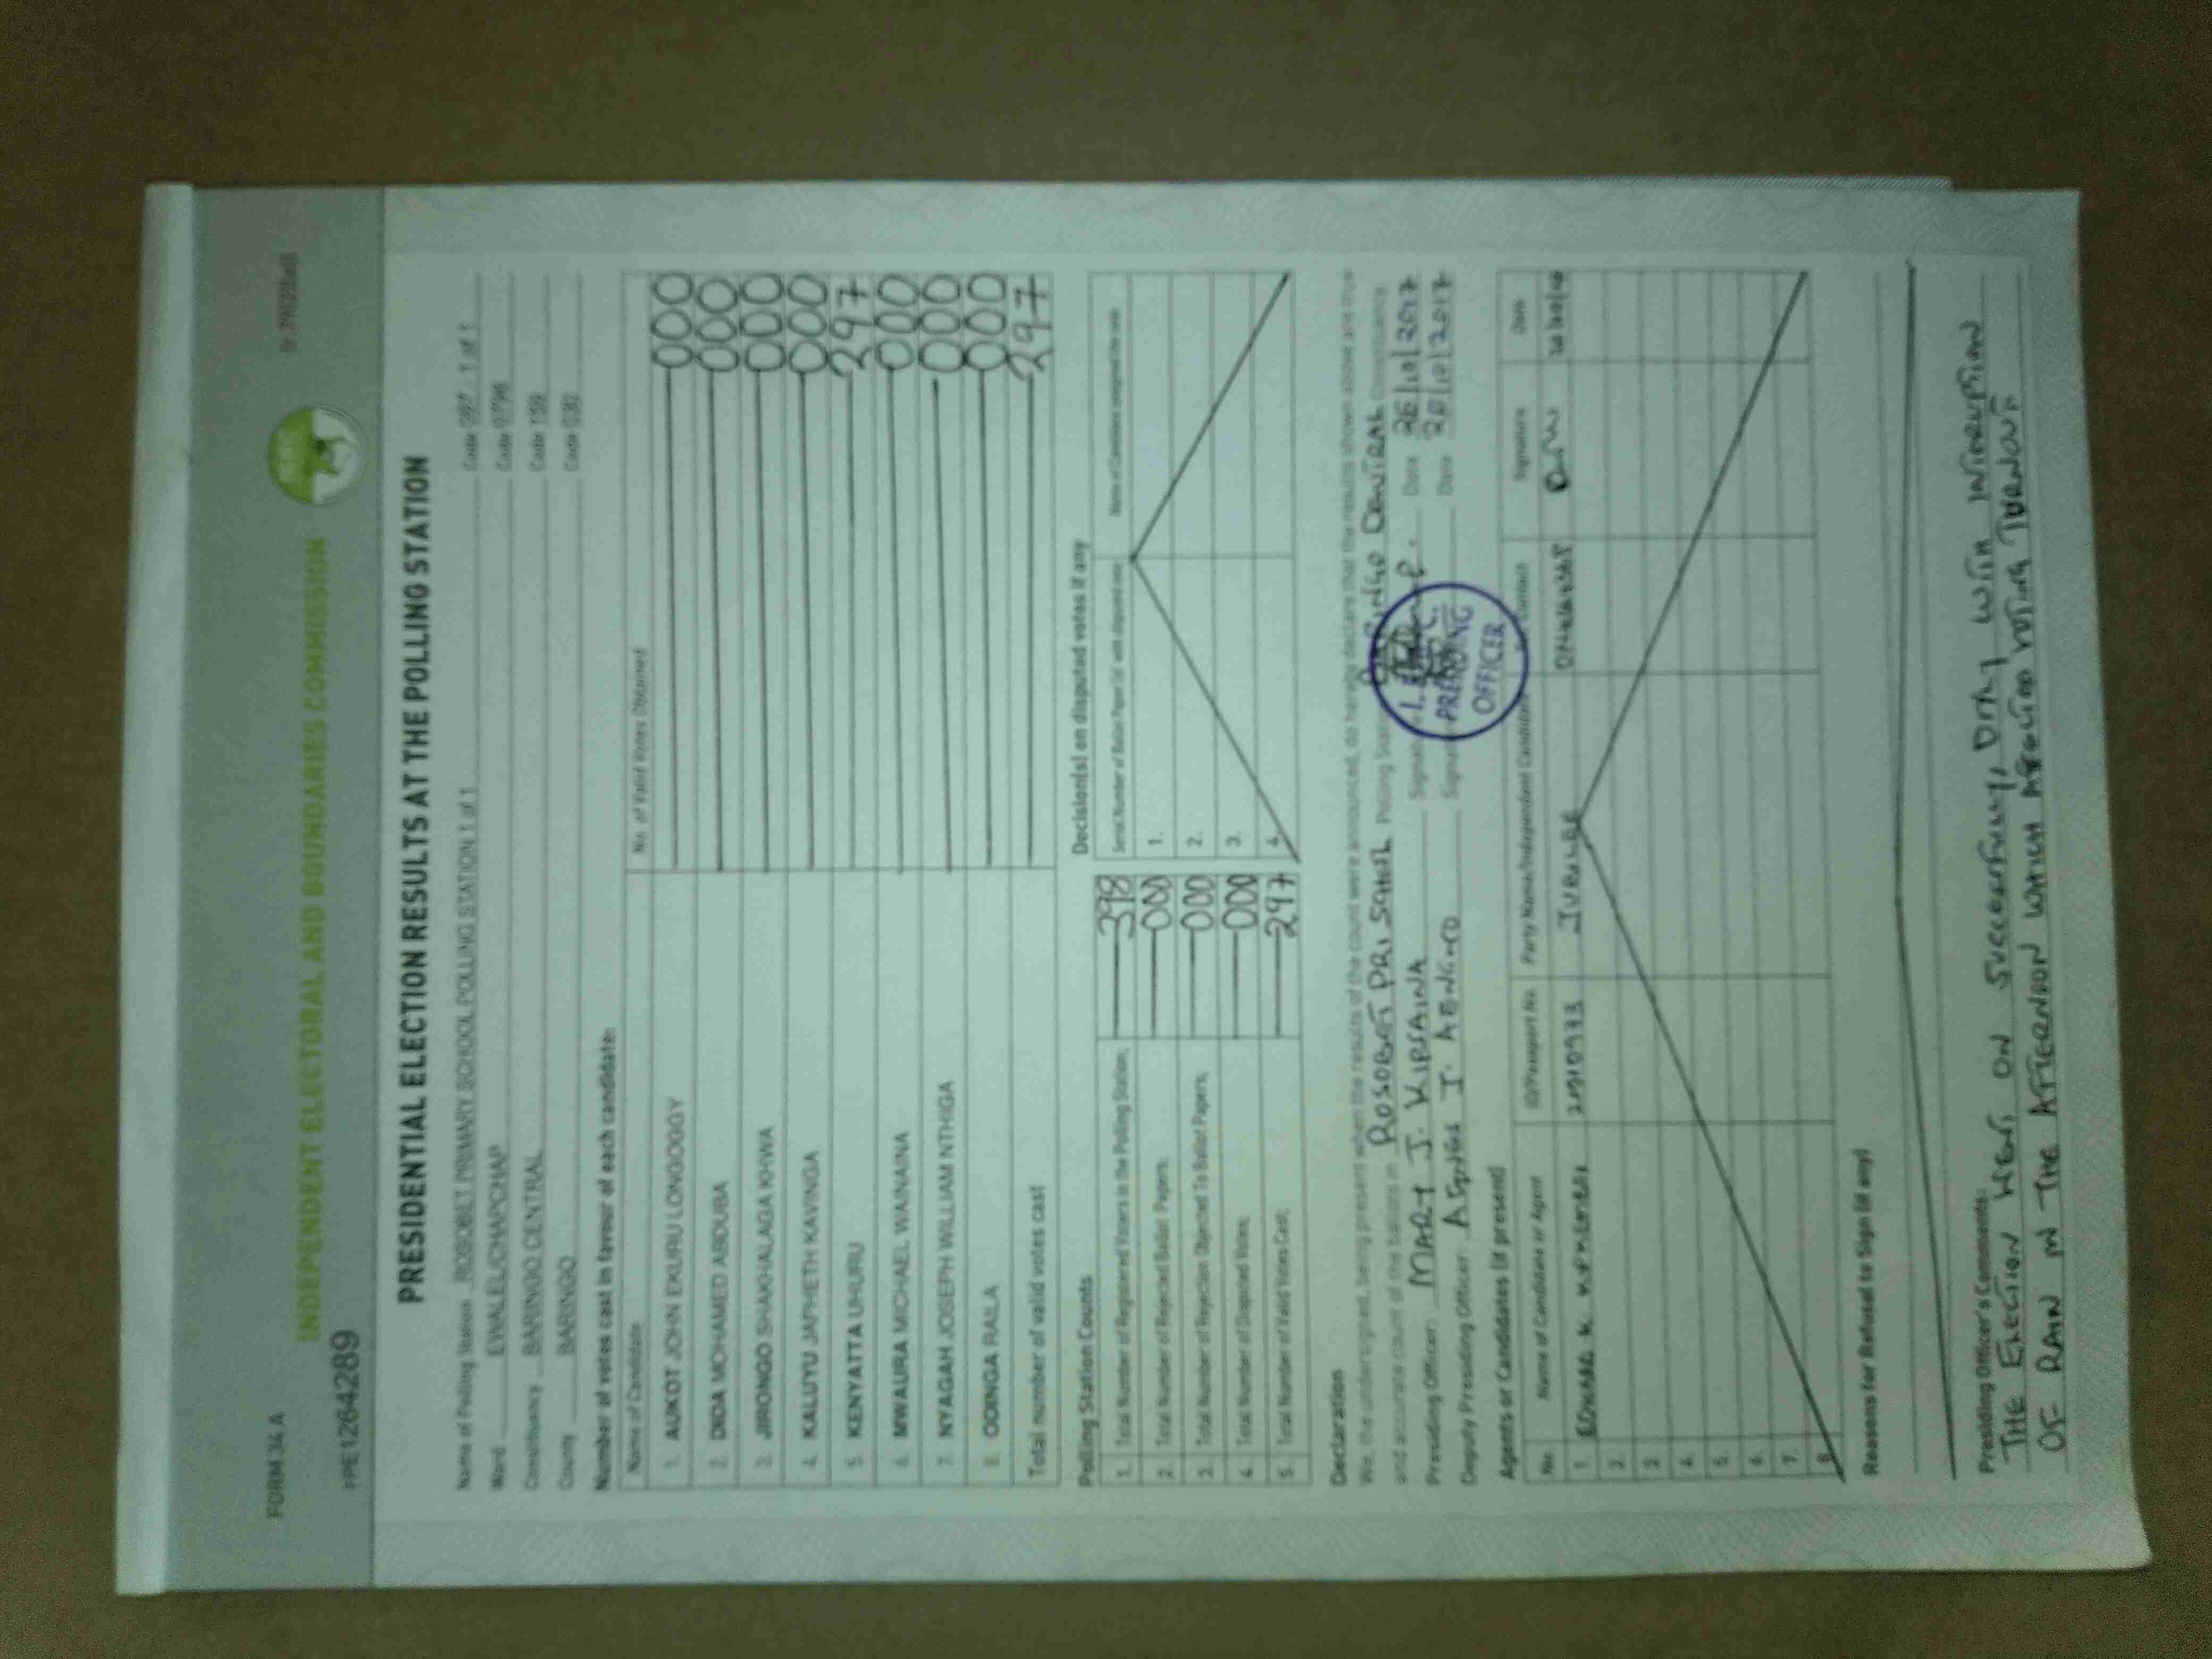 FORM 34 A
INDEPENDENT ELECTORAL AND BOUNDARIES COMMISSION
PE1264289
PRESIDENTIAL ELECTION RESULTS AT THE POLLING STATION
Name of Polling Station ROSOBET PRIMARY SCHOOL POLLING STATION 1 of 1 Code 097 - 1 of 1
Ward EWALEL/CHAPCHAP Code 0796
Constituency BARINGO CENTRAL Code 159
County BARINGO Code 030
Number of votes cast in favour of each candidate:
Name of Candidate No. of Valid Votes Obtained
1. AUKOT JOHN EKURU LONGOGGY 000
2. DIDA MOHAMED ABDUBA 000
3. JIRONGO SHAKHALAGA KHWA 000
4. KALUYU JAPHETH KAVINGA 000
5. KENYATTA UHURU 297
6. MWAURA MICHAEL WAINAINA 000
7. NYAGAH JOSEPH WILLIAM NTHIGA 000
8. ODINGA RAILA 000
Total number of valid votes cast 297
Polling Station Counts
1. Total Number of Registered Voters in the Polling Station; 398
2. Total Number of Rejected Ballot Papers; 000
3. Total Number of Rejection Objected To Ballot Papers; 000
4. Total Number of Disputed Votes; 000
5. Total Number of Valid Votes Cast; 297
Decision(s) on disputed votes if any
Serial Number of Ballot Paper(s) with disputed vote Name of Candidate assigned the vote
1.
2.
3.
4.
Declaration
We, the undersigned, being present when the results of the count were announced, do hereby declare that the results shown above are true
and accurate count of the ballots in ROSOBET PRI SCHOOL Polling Station BARINGO CENTRAL Constituency.
Presiding Officer: MARY J. KIPSAINA Signature Date 26/10/2017
Deputy Presiding Officer: AGNES J. Signature Date 26/10/2017
I.E.B.C. PRESIDING OFFICER
Agents or Candidates (if present)
No. Name of Candidate or Agent ID/Passport No. Party Name/Independent Candidate Contact Signature Date
1. EDWARD K. JUBILEE
2.
3.
4.
5.
6.
7.
8.
Reasons for Refusal to Sign (if any)
Presiding Officer's Comments:
THE ELECTION WENT ON SUCCESSFULLY, DAY WITH INTERUPTION
OF RAIN IN THE AFTERNOON WHICH AFFECTED VOTING TURNOUT